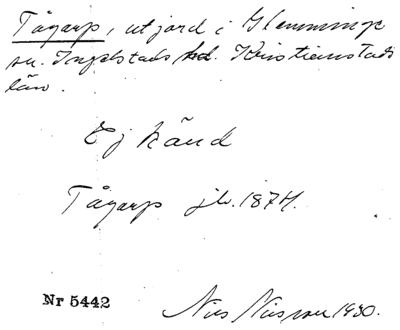 Tågarp, utjord i Glemminge
sn. Ingelstads hd. Kristianstads
län.
Ej känd
Tågarp jb. 1874.
Nr 5442
Nils Nilsson 1930.